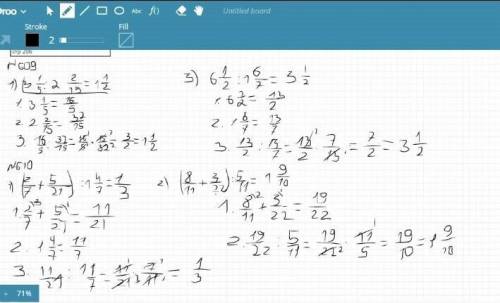 Stroke
Fill
Abc
f()
Untitled board
2
N609
1) 3 1/5 : 2 2/15 = 1 1/2
1. 3 1/5 = 16/5
2. 2 2/15 = 32/15
3. 16/5 : 32/15 = 16/5 · 15/32 = 3/2 = 1 1/2
3) 6 1/2 : 1 6/7 = 3 1/2
1. 6 1/2 = 13/2
2. 1 6/7 = 13/7
3. 13/2 : 13/7 = 13/2 · 7/13 = 7/2 = 3 1/2
N610
1) (2/7 + 5/21) : 1 4/7 = 1/3
1. 2/7 + 5/21 = 11/21
2. 1 4/7 = 11/7
3. 11/21 : 11/7 = 11/21 · 7/11 = 1/3
2) (8/11 + 3/22) : 5/11 = 1 9/10
1. 8/11 + 3/22 = 19/22
2. 19/22 : 5/11 = 19/22 · 11/5 = 19/10 = 1 9/10
71%